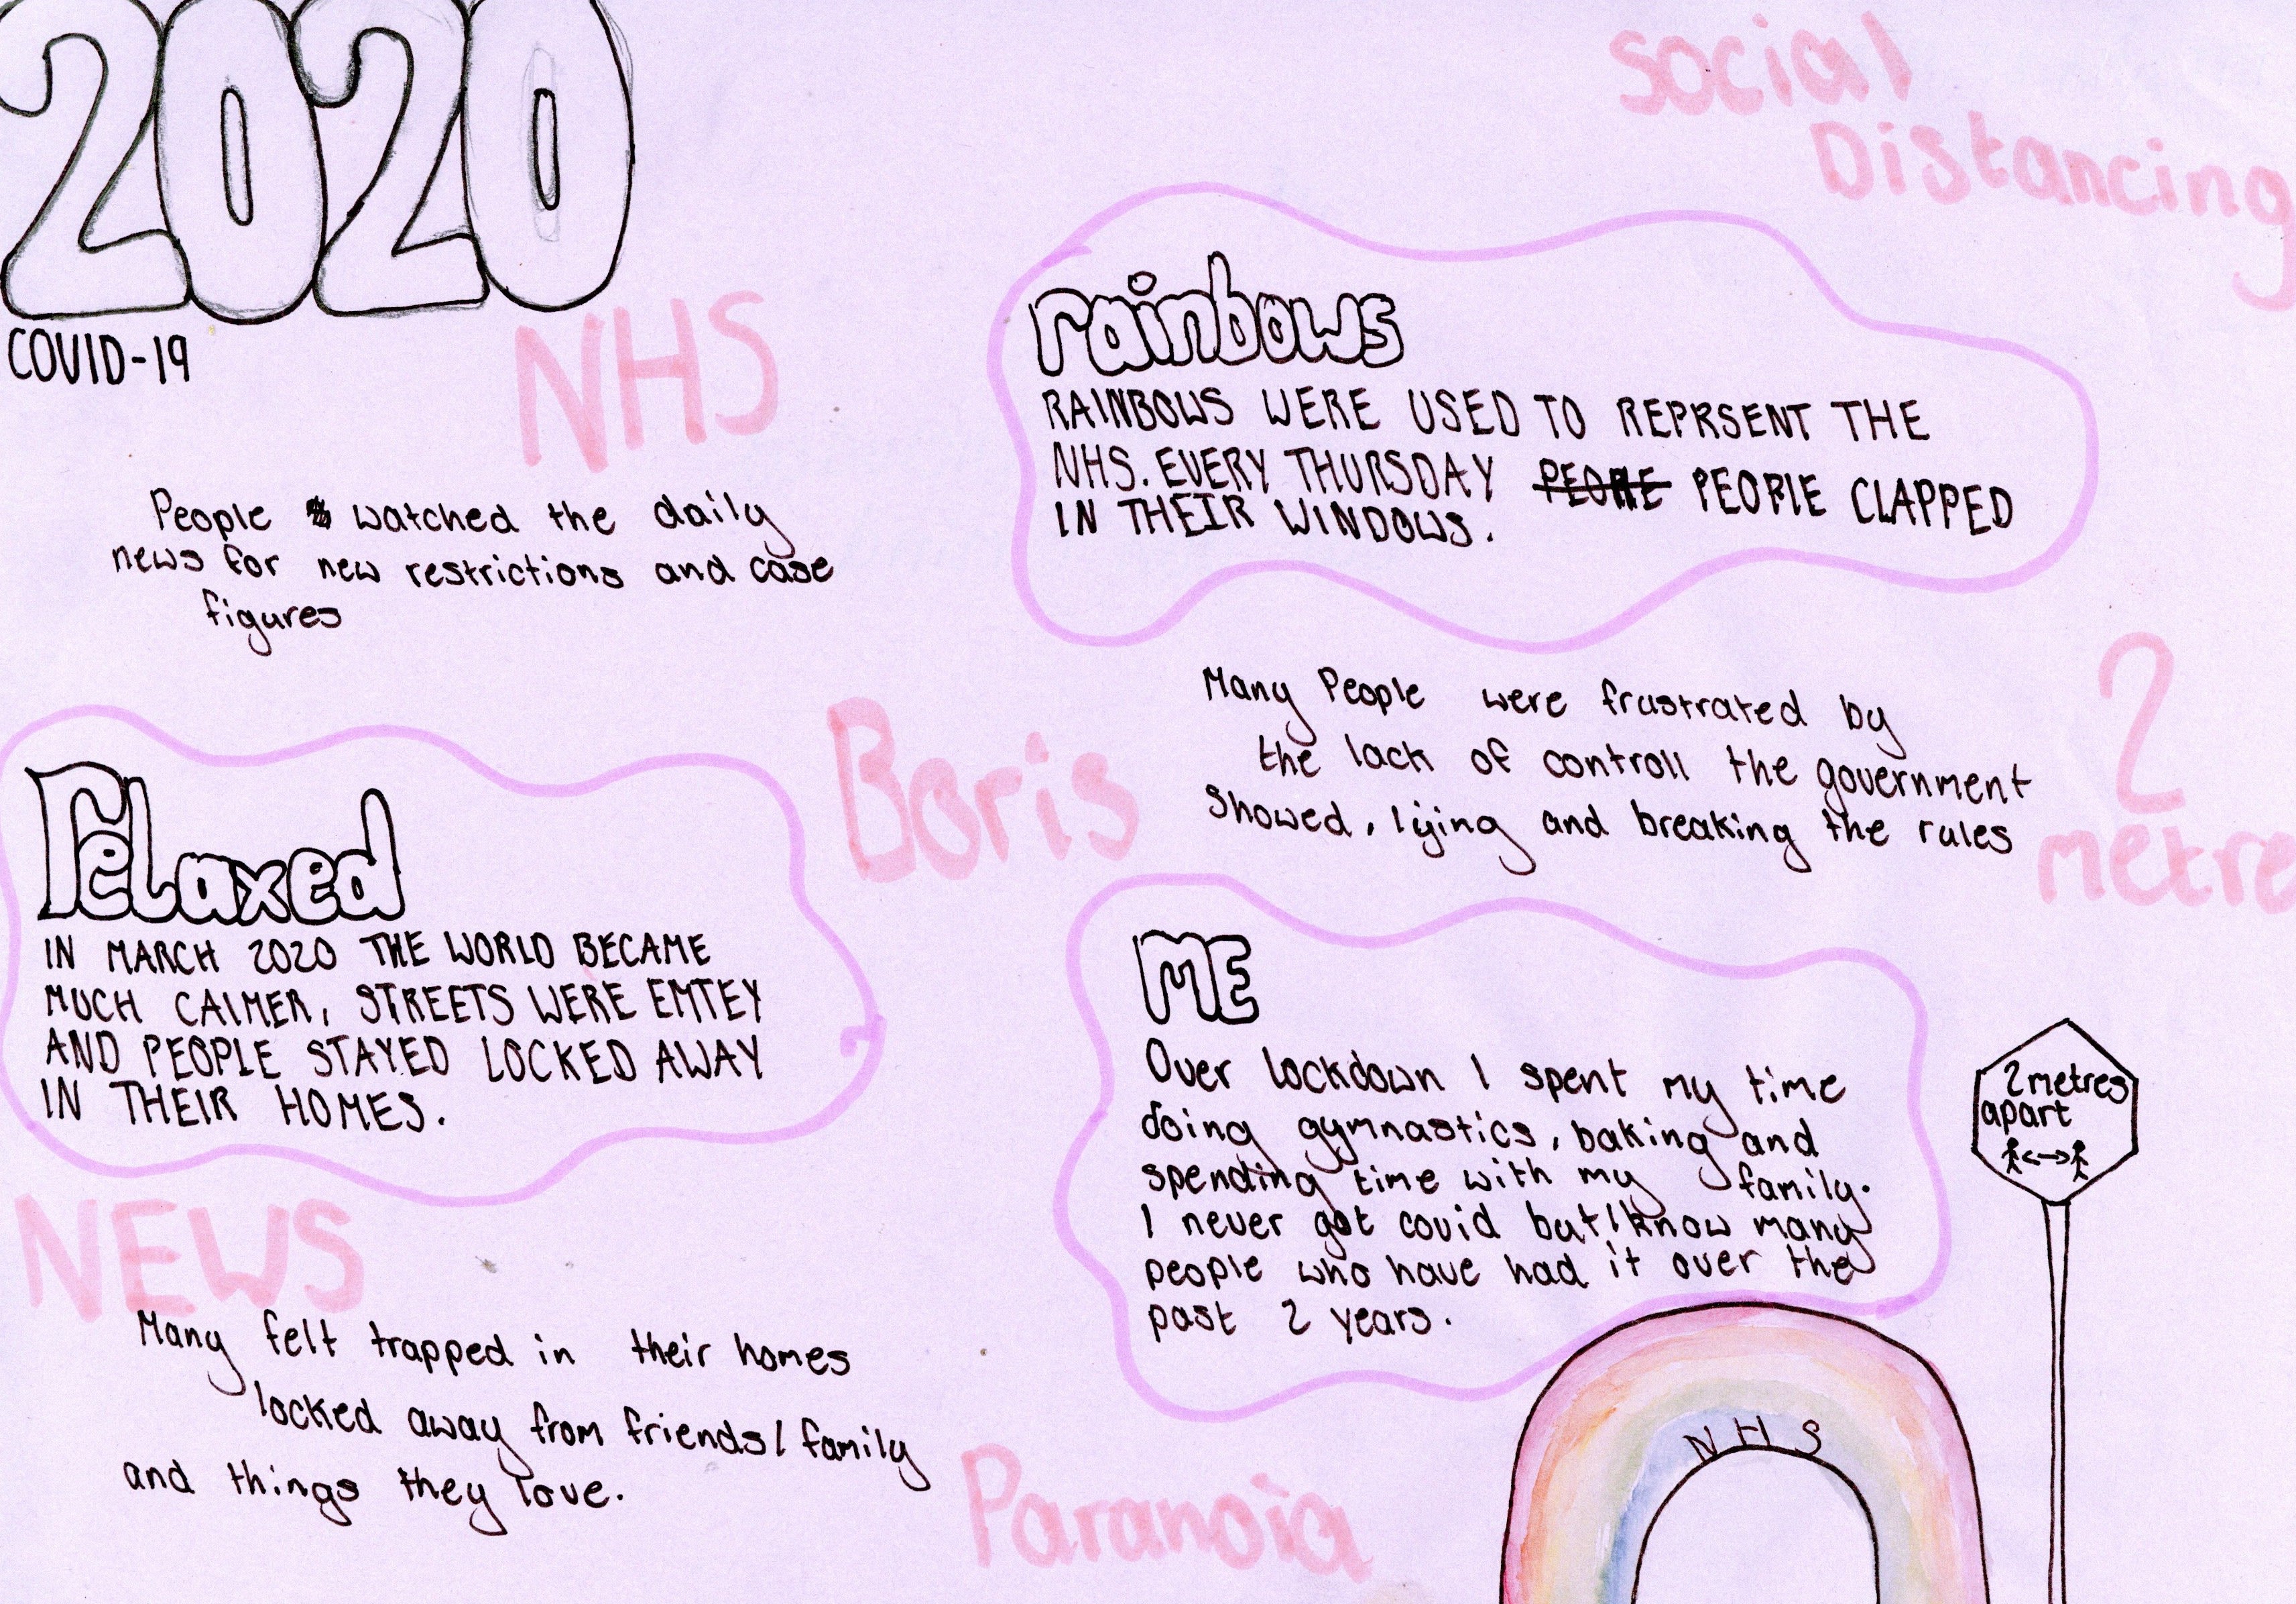 2020
COVID-19
NHS
People watched the daily
news for new restrictions and case
figures
Social
Distancing
rainbows
RAINBOWS WERE USED TO REPRSENT THE
NHS. EVERY THURSDAY PEOPLE PEOPLE CLAPPED
IN THEIR WINDOWS.
Many People were frustrated by
the lack of controll the government
showed, lying and breaking the rules
2
metre
Boris
Relaxed
IN MARCH 2020 THE WORLD BECAME
MUCH CALMER, STREETS WERE EMTEY
AND PEOPLE STAYED LOCKED AWAY
IN THEIR HOMES.
ME
Over lockdown I spent my time
doing gymnastics, baking and
spending time with my family.
I never got covid but I know many
people who have had it over the
past 2 years.
2 metres
apart
NEWS
Many felt trapped in their homes
locked away from friends/family
and things they love.
Paranoia
NHS